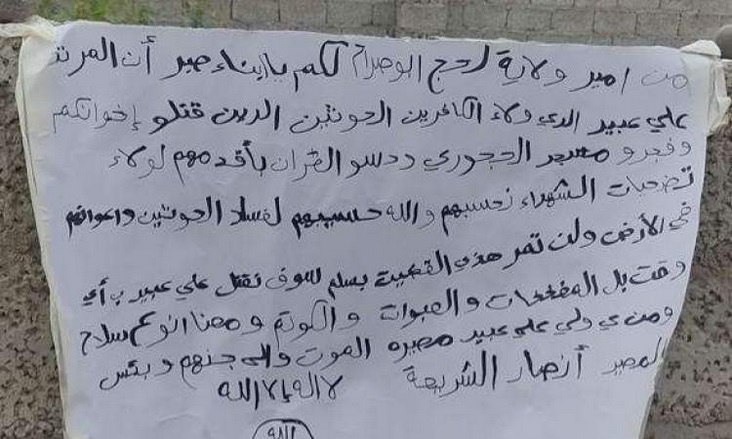 من امير ولاية لحج ابوصرام لكم يا ابناء صبر أن المرتد
علي عبيد الدي ولاء الكافرين الحوثين الدين قتلو إخوانكم
وفجرو مسجد الحجوري ودسو القران بأقدمهم لولاء
تضحبات الشهداء نحسبهم والله حسيبهم لفساد الحوثين واعوانهم
في الأرض ولن تمر هذي القضيت بسلم لسوف نقتل علي عبير ب أي
وقت بل المفخخات والعبوات والكوتم ومعنا انوع سلاح
ومن ي ولي علي عبير مصيره الموت والى جنهم وبئس
المصير أنصار الشريعة لااله إلا الله
الله